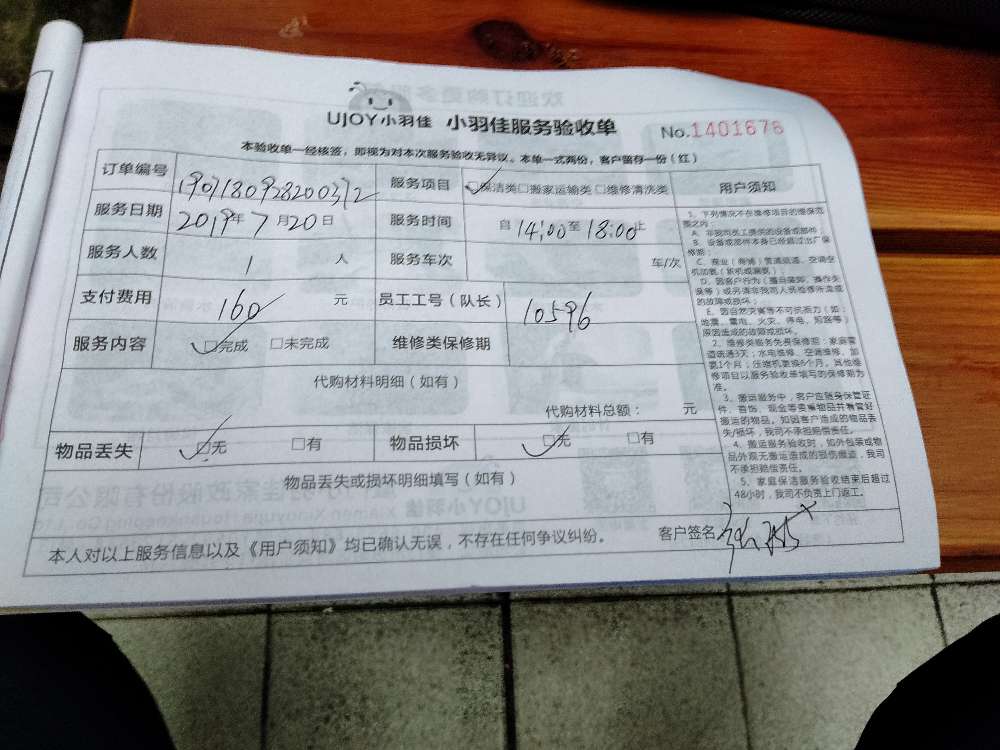 UJOY小羽佳 小羽佳服务验收单 No.1401676
本验收单一经核签，即视为对本次服务验收无异议。本单一式两份，客户留存一份（红）
订单编号 1907180928200372 服务项目 保洁类□搬家运输类□维修清洗类 用户须知
服务日期 2019年7月20日 服务时间 自14:00至18:00止
服务人数 1人 服务车次 车/次
支付费用 160元 员工工号（队长） 10596
服务内容 □完成 □未完成 维修类保修期
代购材料明细（如有）
代购材料总额： 元
物品丢失 □无 □有 物品损坏 □无 □有
物品丢失或损坏明细填写（如有）
本人对以上服务信息以及《用户须知》均已确认无误，不存在任何争议纠纷。 客户签名
1、下列情况不在维修项目的维保范
围之内：
A、非我司员工提供的设备或部件
B、设备或部件本身已经超过出厂保
修期；
E、因自然灾害等不可抗拒力（如：
地震、雷电、火灾、停电、短路等）
原因造成的故障或损坏。
2、维修类服务免费保修期：家庭管
道疏通3天；水电维修、空调维修、加
氨1个月；压缩机更换6个月。其他维
修项目以服务验收单填写的保修期为
准。
3、搬运服务中，客户应随身保管证
件、首饰、现金等贵重物品并看管好
搬运的物品。如因客户造成的物品丢
失/损坏，我司不承担赔偿责任。
4、搬运服务验收时，如外包装或物
品外观无搬运造成的损伤痕迹，我司
不承担赔偿责任。
5、家庭保洁服务验收结束后超过
48小时，我司不负责上门返工。